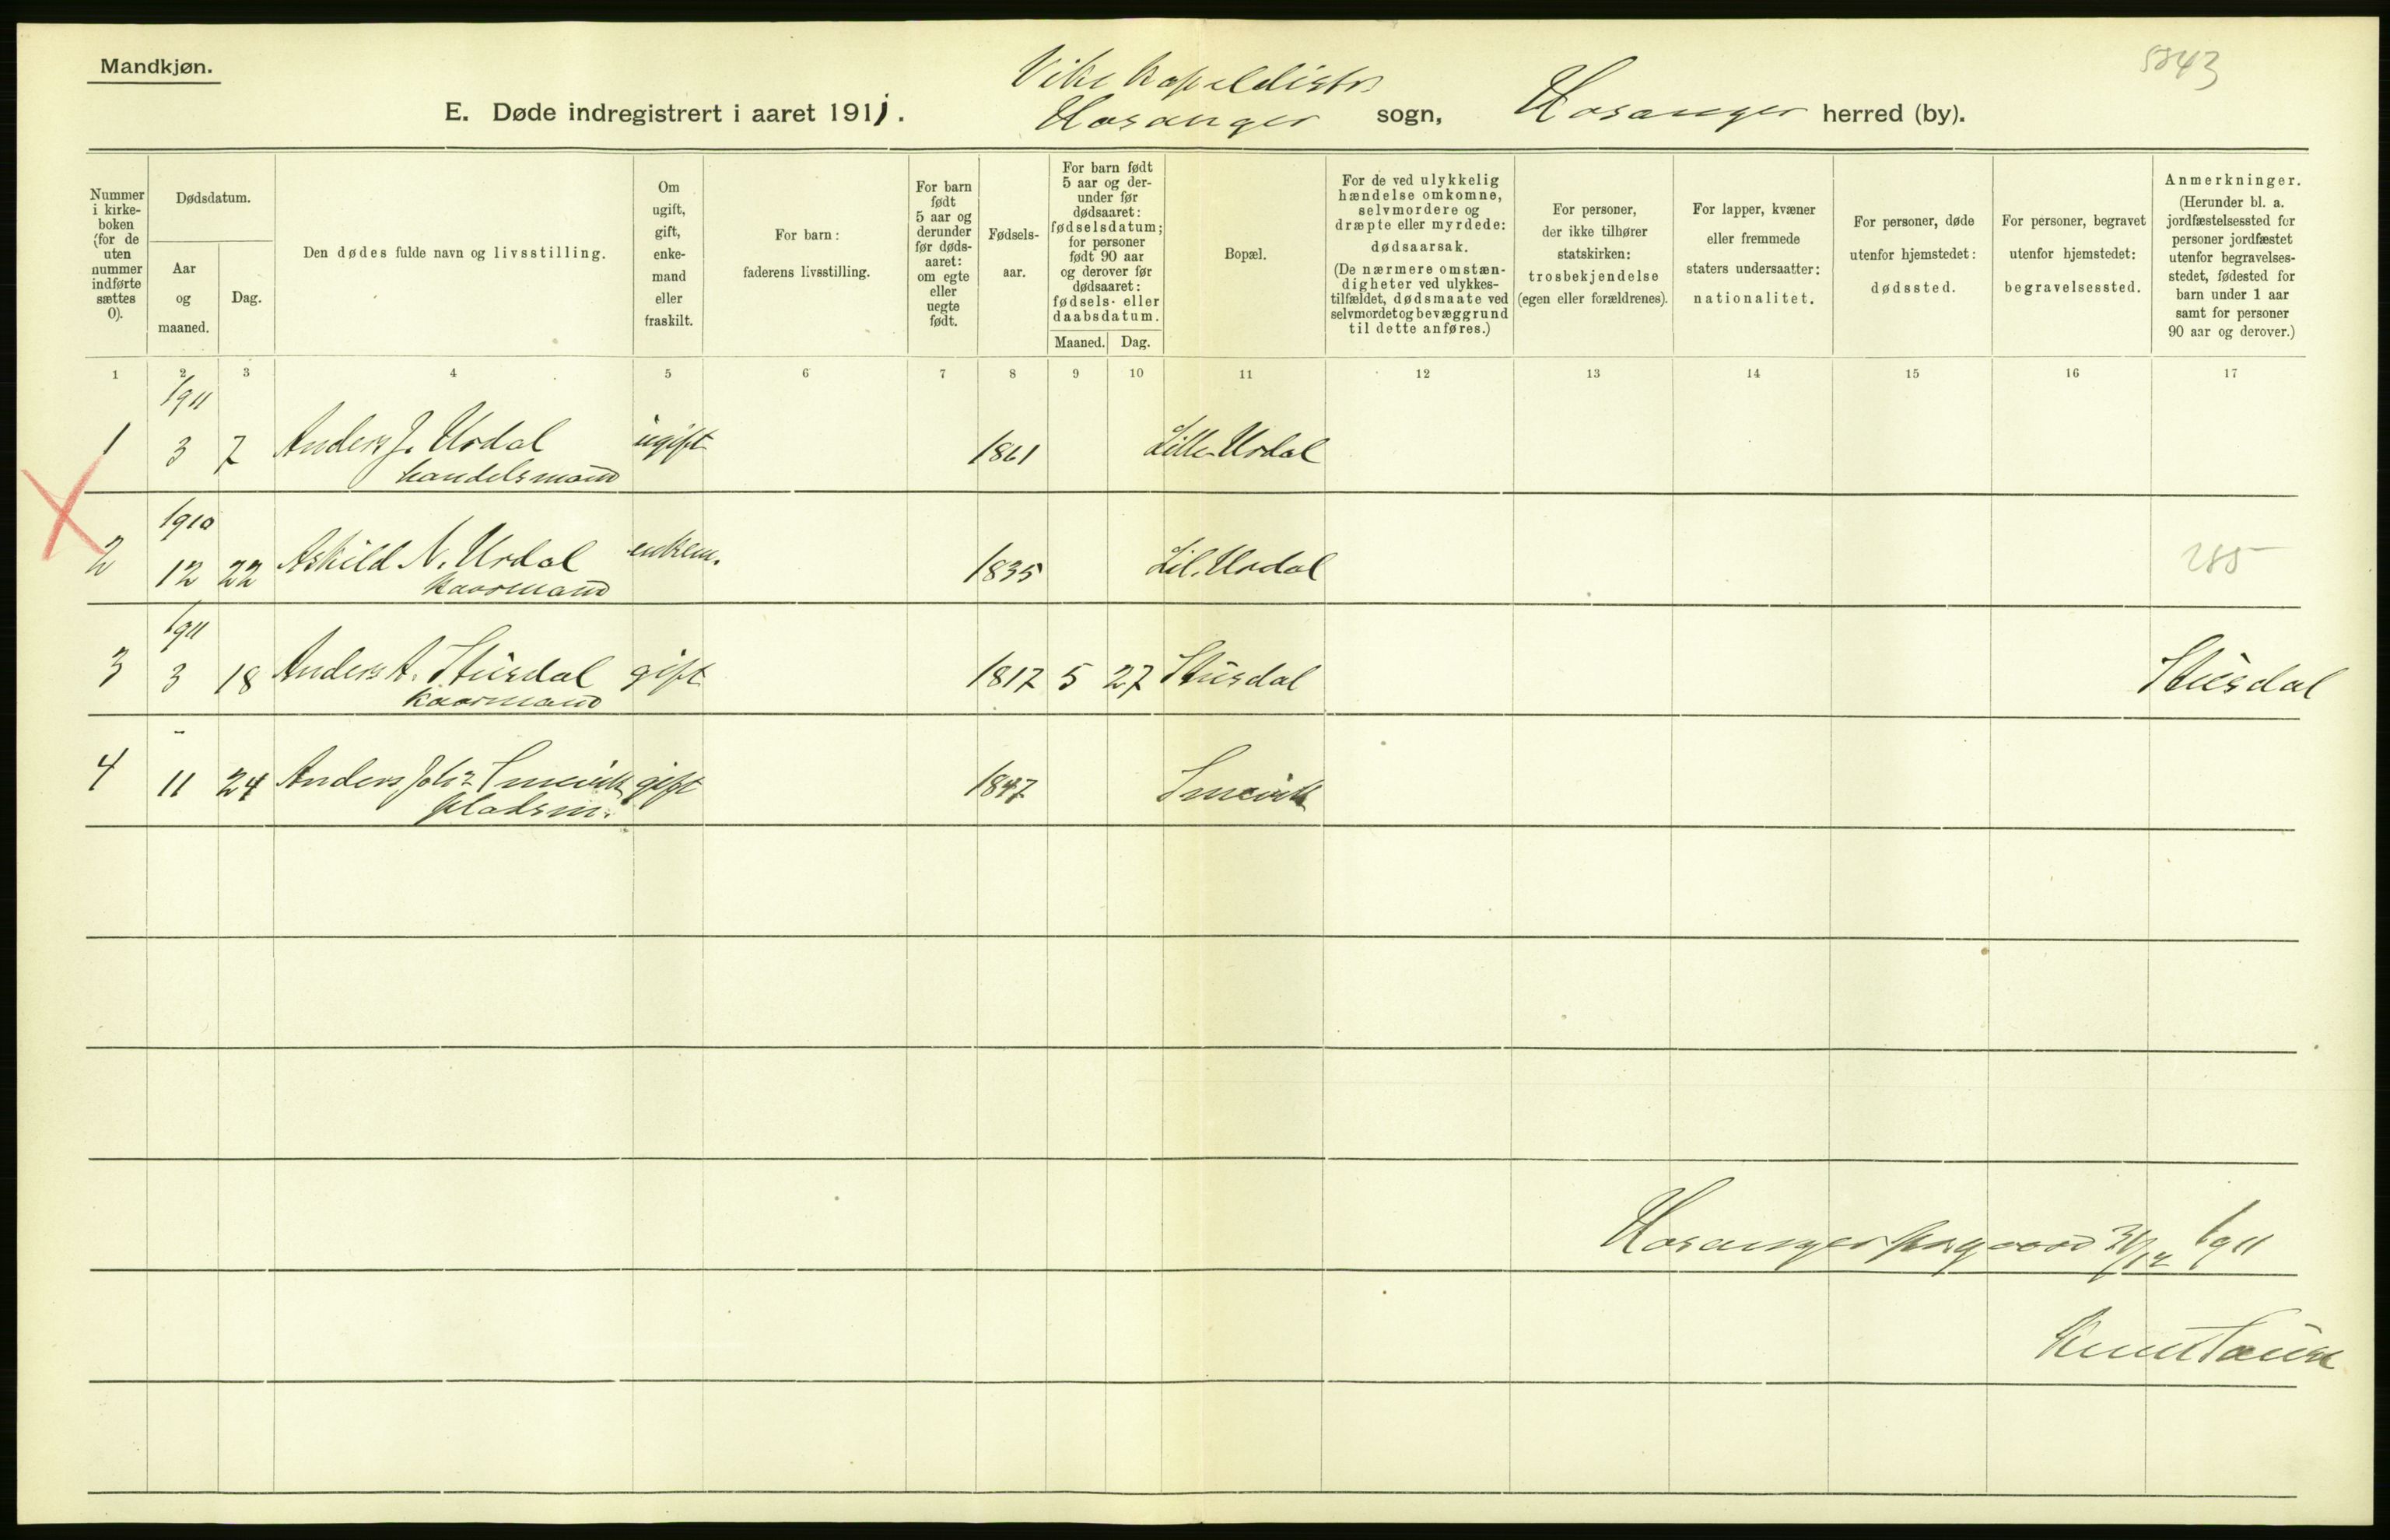 Mandkjøn.
5843
Vike kapeldistr
E. Døde indregistrert i aaret 1911. Hosanger sogn, Hosanger herred (by).
Nummer i kirke-boken (for de uten nummer indførte sættes 0).
Dødsdatum.
Aar og maaned.
Dag.
Den dødes fulde navn og livsstilling.
Om ugift, gift, enke-mand eller fraskilt.
For barn: faderens livsstilling.
For barn født 5 aar og derunder før døds-aaret: om egte eller uegte født.
Fødsels-aar.
For barn født 5 aar og der-under før dødsaaret: fødselsdatum; for personer født 90 aar og derover før dødsaaret: fødsels- eller daabsdatum.
Maaned. Dag.
Bopæl.
For de ved ulykkelig hændelse omkomne, selvmordere og dræpte eller myrdede: dødsaarsak. (De nærmere omstæn-digheter ved ulykkes-tilfældet, dødsmaate ved selvmordet og bevæggrund til dette anføres.)
For personer, der ikke tilhører statskirken: trosbekjendelse (egen eller forældrenes).
For lapper, kvæner eller fremmede staters undersaatter: nationalitet.
For personer, døde utenfor hjemstedet: dødssted.
For personer, begravet utenfor hjemstedet: begravelsessted.
Anmerkninger. (Herunder bl. a. jordfæstelsessted for personer jordfæstet utenfor begravelses-stedet, fødested for barn under 1 aar samt for personer 90 aar og derover.)
1 2 3 4 5 6 7 8 9 10 11 12 13 14 15 16 17
1911
1 3 7 Anders J. Urdal ugift 1861 Lille Urdal
handelsmand
1910
2 12 22 Askild N. Urdal enkem. 1835 Lil. Urdal 285
kaarmand
1911
3 3 18 Anders A. Stusdal gift 1817 5 27 Stusdal Stusdal
kaarmand
-
4 11 24 Anders Johs Smevik gift 1847 Smevik
pladsm.
Hosanger prgaard 31/12 1911